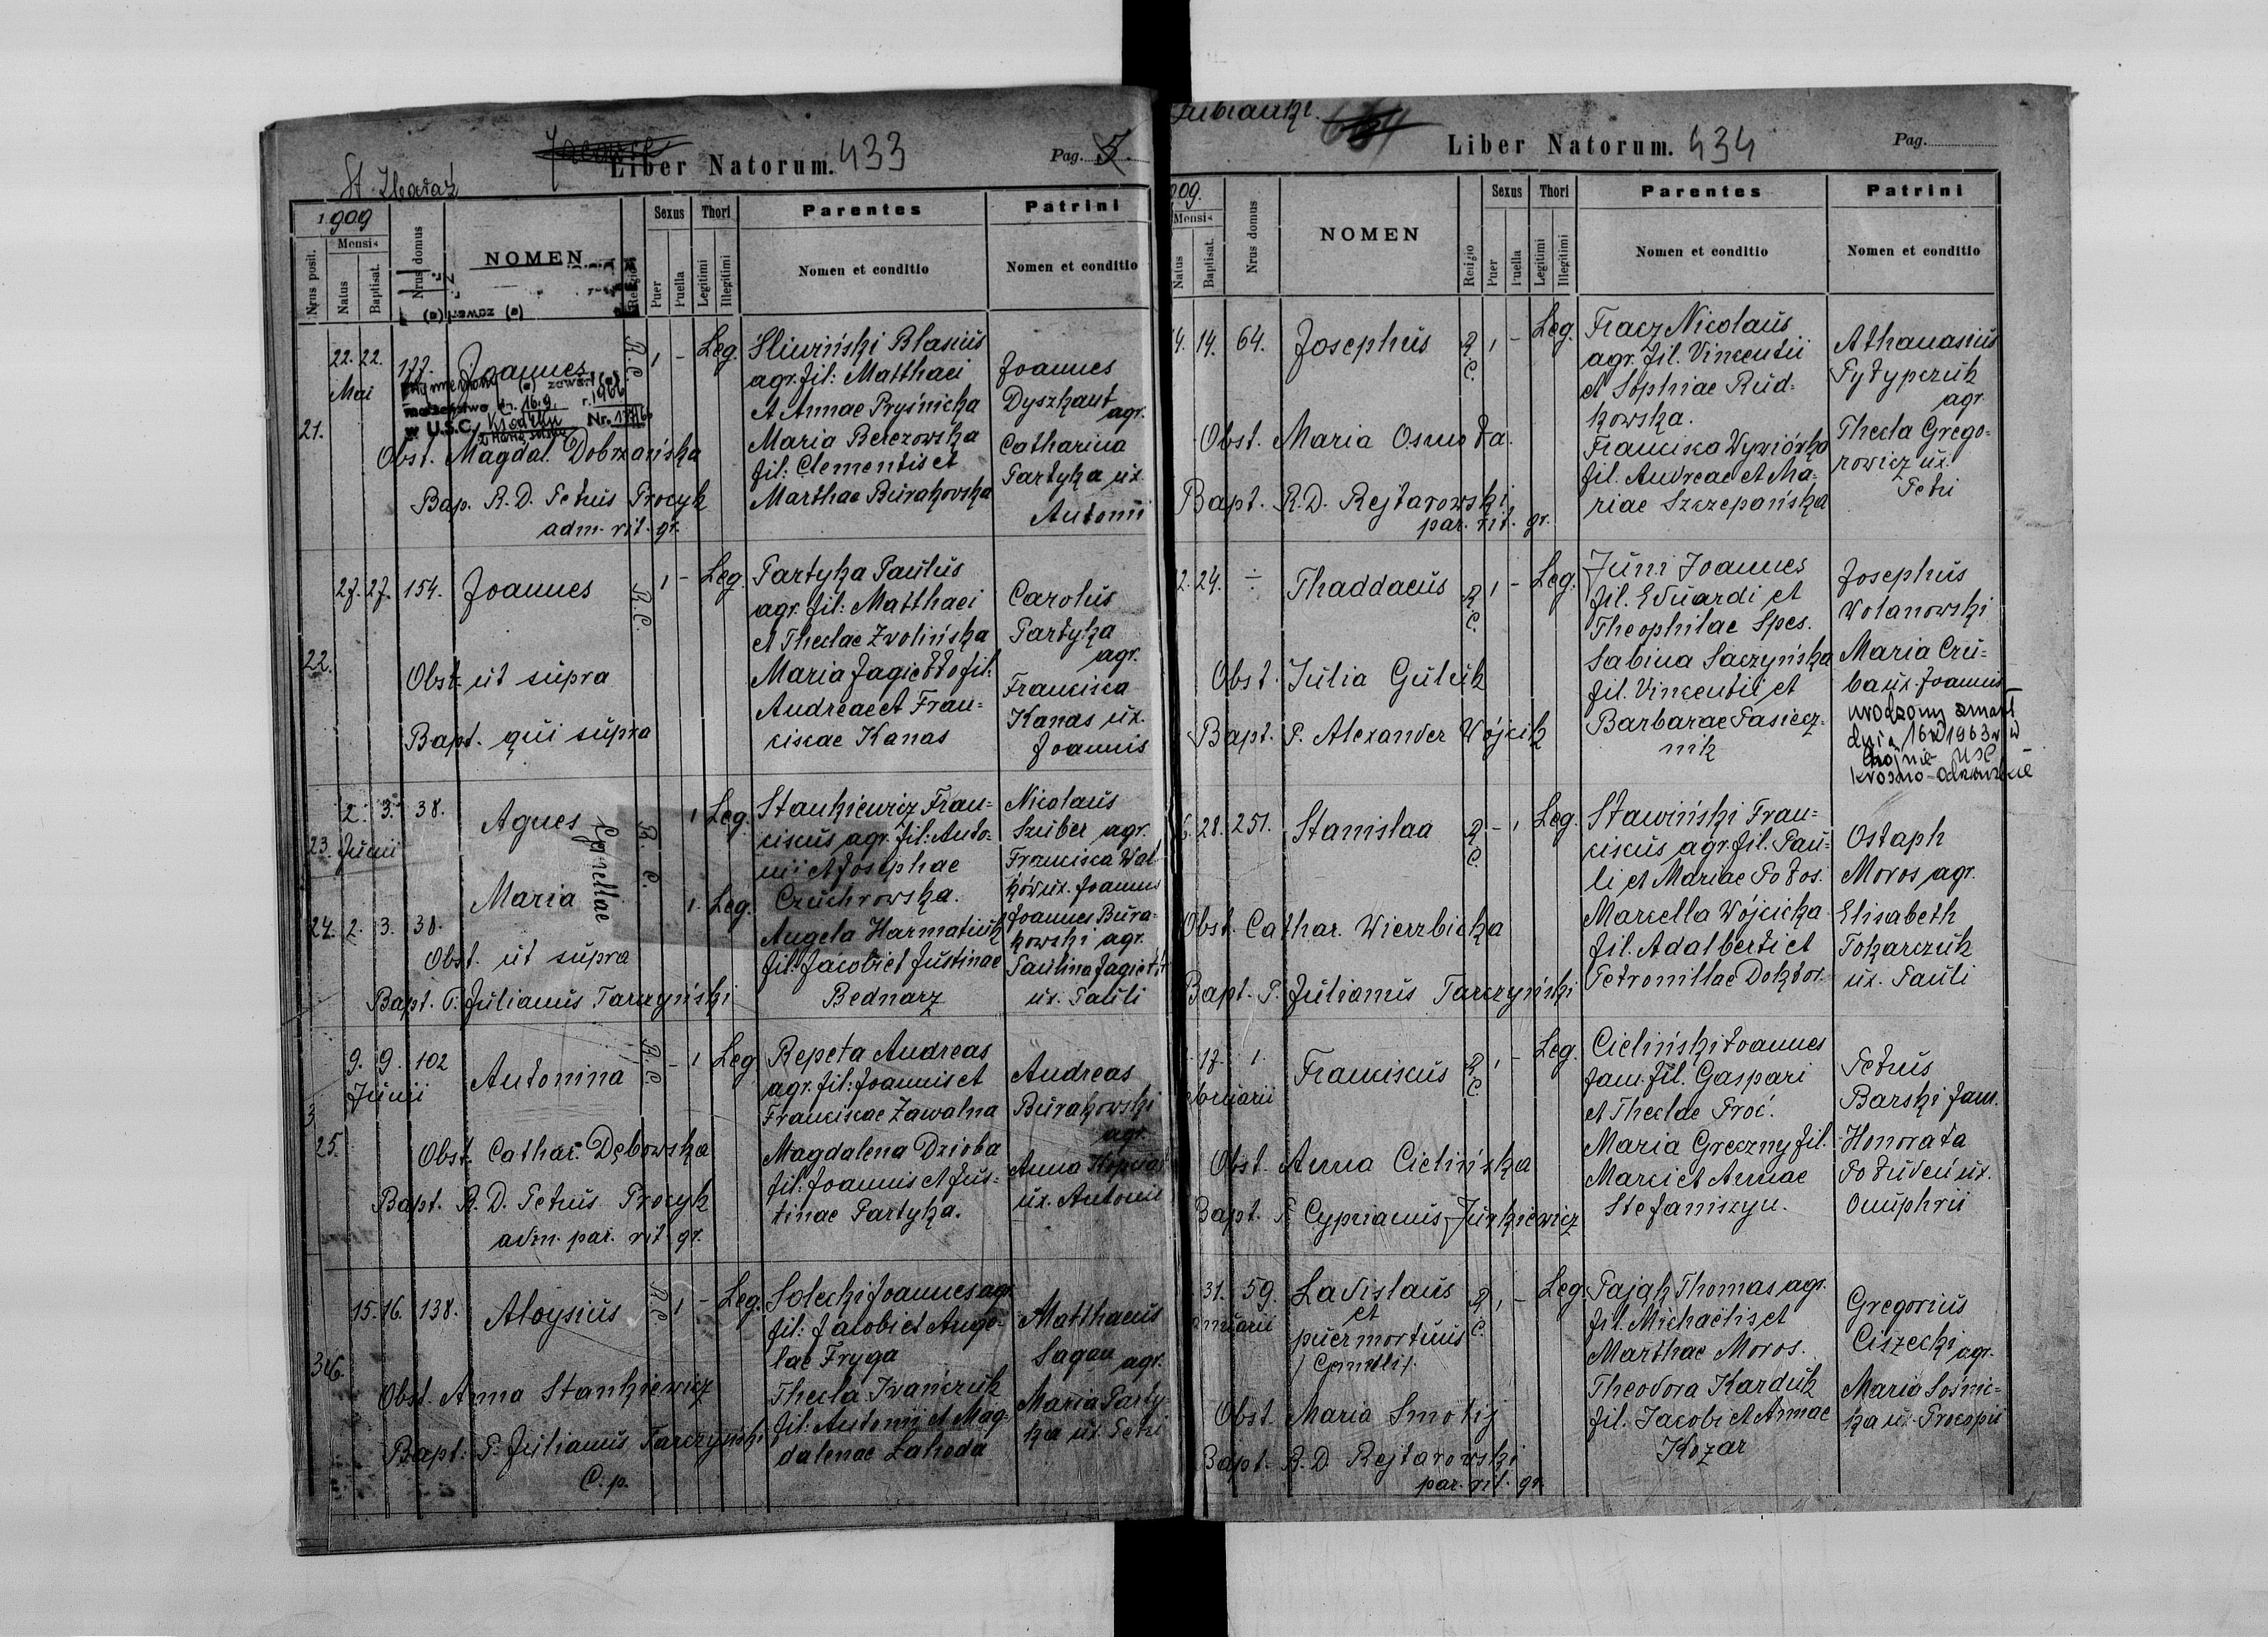 St. Zbaraż
Liber Natorum. 433
Pag. 5.
1909
Nrus posit.
Mensis
Natus
Baptisat.
Nrus domus
NOMEN
Religio
Sexus
Puer
Puella
Thori
Legitimi
Illegitimi
Parentes
Nomen et conditio
Patrini
Nomen et conditio
21.
22. 22. 177. Joannes R.C. 1 - Leg.
Mai
małżeństwo d. 16.9. r. 1966
w U.S.C.
Obst. Magdal. Dobrzańska
Bap. R. D. Petrus Procyk
adm. rit. gr.
Śliwiński Blasius
agr. fil: Matthaei
et Annae Pryśnicka
Maria Berezowska
fil: Clementis et
Marthae Burakovska
Joannes
Dyszkant
agr.
Catharina
Partyka ux.
Antonii
22.
27. 27. 154. Joannes R.C. 1 - Leg.
Obst. ut supra
Bapt. qui supra
Partyka Paulus
agr. fil: Matthaei
et Theclae Zwolińska
Maria Jagiełło fil:
Andreae et Fran=
ciscae Kanas
Carolus
Partyka
agr.
Francisca
Kanas ux.
Joannis
23. 2. 3. 38. Agnes R. C. 1 Leg.
Junii
Gemellae
24. 2. 3. 38. Maria 1. Leg.
Obst. ut supra
Bapt. P. Julianus Tarczyński
Stankiewicz Fran=
ciscus agr. fil: Anto=
nii et Josephae
Czuchrowska.
Angela Harmatiuk
fil: Jacobi et Justinae
Bednarz
Nicolaus
Szuber agr.
Francisca Wal=
ków ux. Joannis
Joannes Bura=
kowski agr.
Paulina Jagiełło
ux. Pauli
25.
9. 9. 102 Antonina R. C. - 1 Leg
Junii
Obst. Cathar. Dębowska
Bapt. R. D. Petrus Procyk
adm. par. rit. gr.
Repeta Andreas
agr. fil: Joannis et
Franciscae Zawalna
Magdalena Dzioba
fil: Joannis et Jus=
tinae Partyka.
Andreas
Burakowski
agr.
Anna
ux. Antonii
15. 16. 138. Aloysius R.C. 1 - Leg.
Obst. Anna Stankiewicz
Bapt. P. Julianus Tarczyński
C. p.
Solecki Joannes agr.
fil: Jacobi et Ange=
lae Fryga
Thecla Iwańczuk
fil: Antonii et Mag=
dalenae Lahoda
Matthaeus
Sagan agr.
Maria Party
ka ux. Petri
Liber Natorum. 434
Pag.
909.
Mensis
Natus
Baptisat.
Nrus domus
NOMEN
Religio
Sexus
Puer
Puella
Thori
Legitimi
Illegitimi
Parentes
Nomen et conditio
Patrini
Nomen et conditio
4. 14. 64. Josephus R.C. 1 - Leg.
Obst. Maria Osmoła.
Bapt. R. D. Rejtarowski
par. rit. gr.
Fracz Nicolaus
agr. fil. Vincentii
et Sophiae Rud=
kowska.
Francisca Wywiórka
fil. Andreae et Ma=
riae Szczepańska
Athanasius
Tytypczuk
agr
Thecla Grego=
rowicz ux.
Petri
2. 24. ÷ Thaddaeus R.C. 1 - Leg.
Obst. Julia Gulcik
Bapt. P. Alexander Wójcik
Juni Joannes
fil. Eduardi et
Theophilae Spes.
Sabina Saczyńska
fil. Vincentii et
Barbarae Pasiecz=
nik
Josephus
Wolanowski
Maria Czu=
ba ux. Joannis
urodzony zmarł
dnia 16 1963 r w
Chojnie USC
Krosno-Odrzańskie
6. 28. 251. Stanislaa R.C. - 1 Leg.
Obst. Cathar. Wierzbicka
Bapt. P. Julianus Tarczyński
Stawiński Fran=
ciscus agr. fil. Pau=
li et Mariae Połos.
Marcella Wójcicka
fil. Adalberti et
Petronillae Doktor
Ostaph
Moros agr.
Elisabeth
Tokarczuk
ux. Pauli
17. 1. Franciscus R.C. 1 - Leg.
bruarii
Obst. Anna Cielińska
Bapt. P. Cyprianus Jurkiewicz
Cieliński Joannes
fam. fil. Gaspari
et Theclae Proć.
Maria Greczny fil.
Marci et Annae
Stefaniszyn.
Petrus
Barski fam.
Honorata
Połudeń ux.
Onuphrii
31. 59. Ladislaus R.C. 1 - Leg.
nuarii
et
puer mortuus
/ Gemelli /.
Obst. Maria Smolij
Bapt. R. D. Rejtarowski
par. rit. gr.
Pająk Thomas agr.
fil. Michaelis et
Marthae Moros.
Theodora Karduk
fil. Jacobi et Annae
Kozar
Gregorius
Ciszecki agr.
Maria Sośnic=
ka ux. Procopii